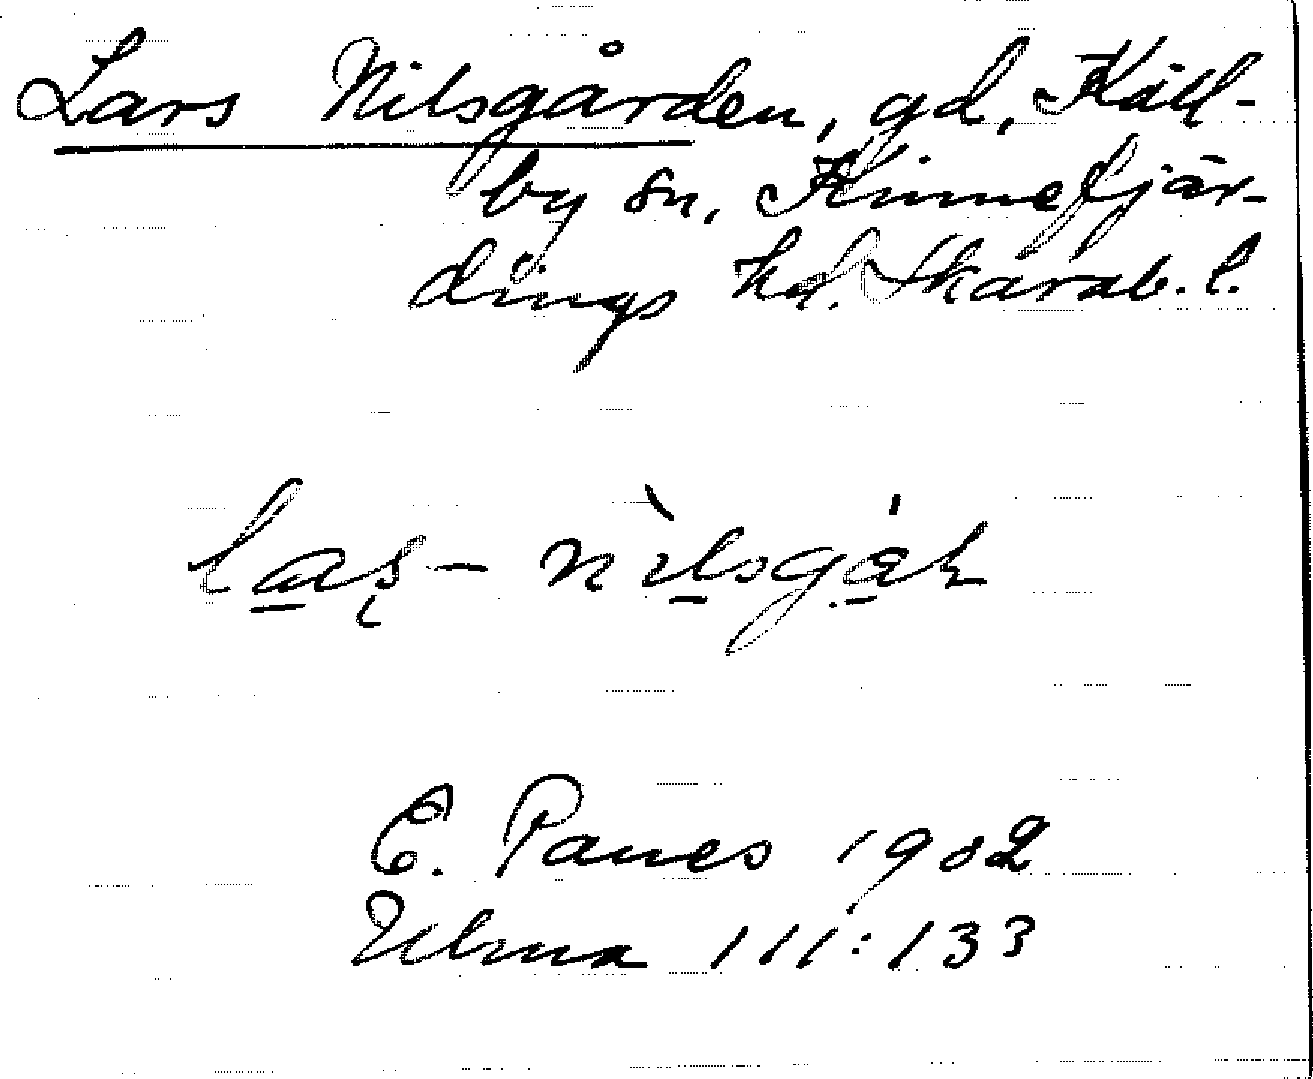 Lars Nilsgården, gd, Käll-
by sn, Kinnefjär-
dings hd. Skarab. l.
E. Panes 1902
Ulma 111:133